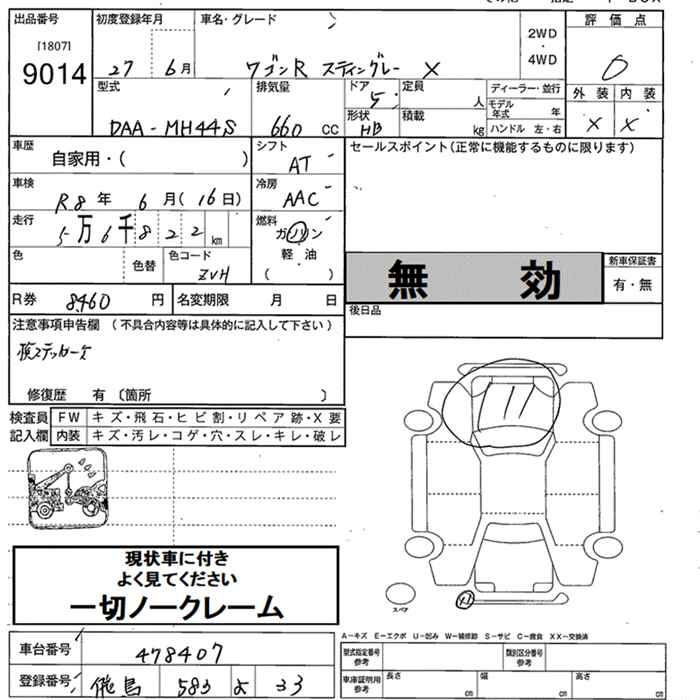 出品番号
[1807]
9014
初度登録年月
27 6月
車名・グレード
ワゴンR スティングレー X
2WD
・
4WD
評価点
0
外装 内装
X X
型式
DAA-MH44S
排気量
660 cc
ドア
5
形状
HB
定員
人
積載
kg
ディーラー・並行
モデル年式 年
ハンドル 左・右
車歴
自家用・( )
シフト
AT
セールスポイント(正常に機能するものに限ります)
車検
R8年 6月(16日)
冷房
AAC
走行
5万6千822km
燃料
ガソリン
軽・油
( )
色
色替
色コード
ZVH
無 効
新車保証書
有・無
R券 8460 円
名変期限 月 日
後日品
注意事項申告欄 (不具合内容等は具体的に記入して下さい)
修復歴 有〔箇所 〕
検査員
記入欄
FW キズ・飛石・ヒビ割・リペア跡・X要
内装 キズ・汚レ・コゲ・穴・スレ・キレ・破レ
現状車に付き
よく見てください
一切ノークレーム
スペア
A-キズ E-エクボ U-凹み W-補修跡 S-サビ C-腐食 XX-交換済
車台番号 478407
登録番号 飛鳥 583 よ 33
型式指定番号
参考
類別区分番号
参考
車庫証明用
参考
長さ cm
幅 cm
高さ cm